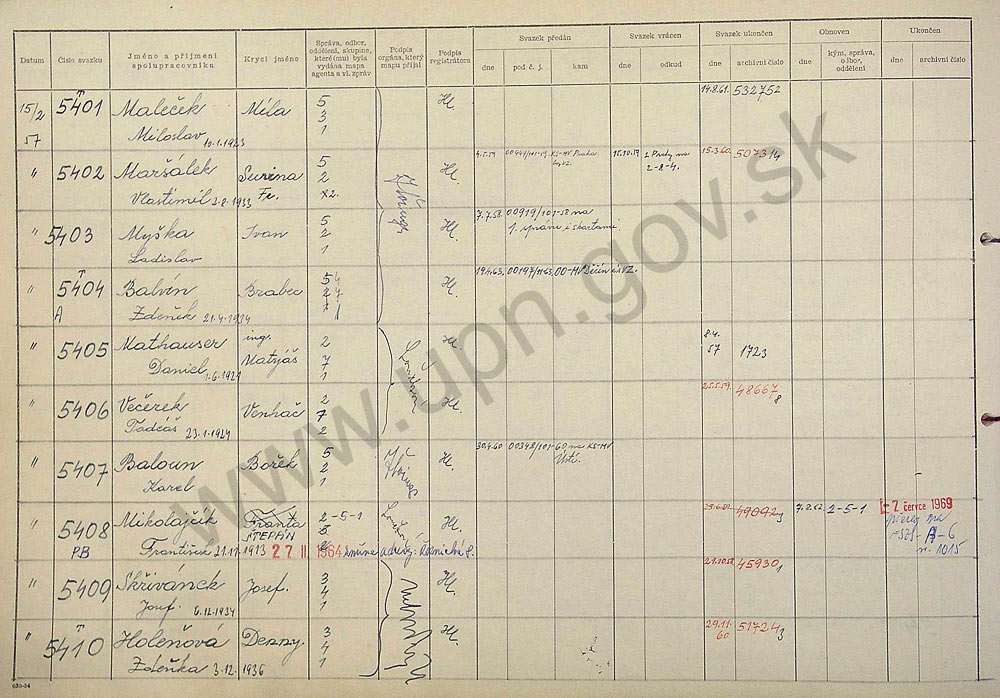 Datum Číslo svazku Jméno a příjmení spolupracovníka Krycí jméno Správa, odbor, oddělení, skupina, které(mu) byla vydána mapa agenta a vl. zpráv Podpis orgána, který mapu přijal Podpis registrátora Svazek předán Svazek vrácen Svazek ukončen Obnoven Ukončen
dne pod č. j. kam dne odkud dne archivní číslo dne kým, správa, odbor, oddělení dne archivní číslo
15/2 5401 Maleček Míla 5 Hl. 14.8.61. 532752
57 Miloslav 10.1.1923 3
1
" 5402 Maršálek 5 Hl. 15.10.59 15.3.60. 50731/4
Vlastimil 2.8.1933 Fr. 2 2-8-4.
" 5403 Myška Ivan 5 Hl. 7.7.58. 00919/101-58 na
Ladislav 2 1. správu
1
" 5404 Balvín Brabec 5 4 Hl. 19.4.63.
A Zdeněk 21.4.1934 2 7
" 5405 Mathauser ing. 2 Hl. 8.4.
Daniel 1.6.1921 Matyáš 7 57 1723
1
" 5406 Večerek Venhač 2 Hl. 25.5.59. 48667/8
Tadeáš 23.1.1924 7
2
" 5407 Baloun Bořek 5 Hl. 30.4.60 00348/101-60 na KS-MV
Karel 2 Ústí.
1
" 5408 Mikolajčík Franta 2-5-1 Hl. 49092/3 7.2.62 2-5-1 - 7. července 1969
PB František 21.11.1913 ŠTEPÁN 27 II 1964 A-6
" 5409 Skřivánek Josef. 3 Hl. 21.10.58 45930/1
Josef. 6.12.1934 4
1
" 5410 Holeňová Denny. 3 Hl. 29.11. 51724/3
Zdeňka 3.12.1936 4 60
1
633-54
www.upn.gov.sk